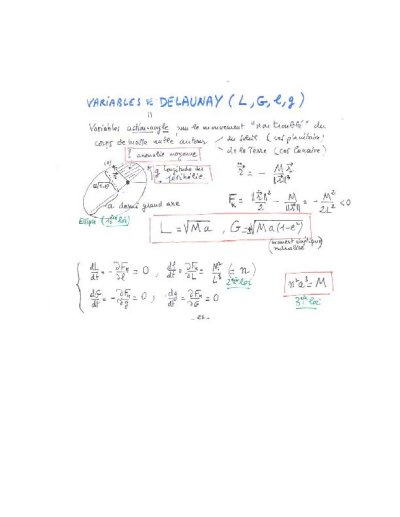 VARIABLES de DELAUNAY (L, G, l, g)
||
Variables action-angle pour le mouvement "non troublé" du
corps de masse nulle autour < du Soleil (cas planétaire)
de la Terre (cas lunaire)
l anomalie moyenne
g longitude du périhélie
a(1-e)
a demi grand axe
Ellipse (1ère loi)
r̈ = - M r / ||r||³
F_K = ||ṙ||²/2 - M/||r|| = - M²/2L² < 0
L = √Ma , G = ±√Ma(1-e²)
(moment cinétique)
dL/dt = - ∂F_K/∂l = 0 , dl/dt = ∂F_K/∂L = M²/L³ (= n)
2ème loi
dG/dt = - ∂F_K/∂g = 0 , dg/dt = ∂F_K/∂G = 0
n²a³ = M
3ème loi